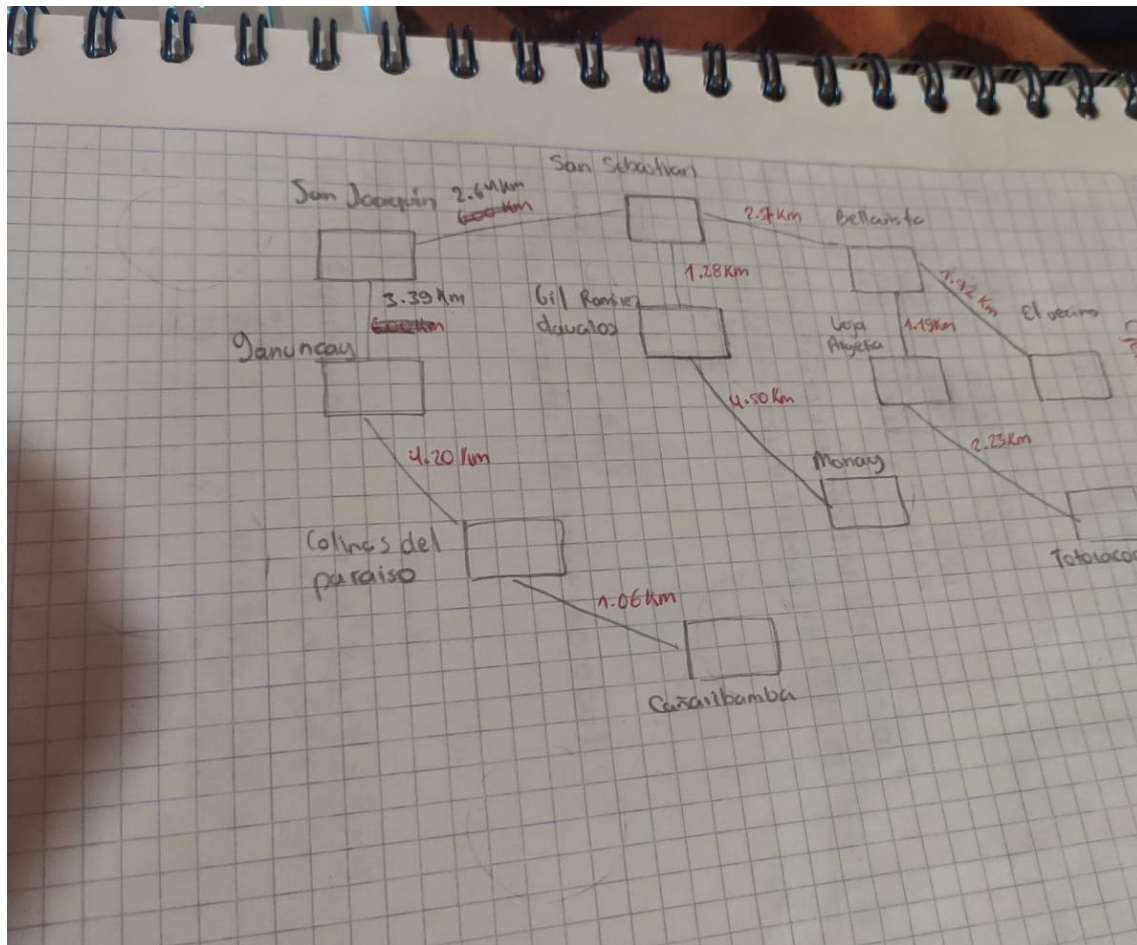 San Sebastian
San Joaquin
2.64km
600km
2.7km
Bellavista
1.28km
1.92 Km
3.39Km
600km
Gil Ramirez
davalos
1.19km
El vecino
yanuncay
4.50Km
4.20 Km
2.23Km
Monay
Colinas del
paraiso
1.06Km
Cañaribamba